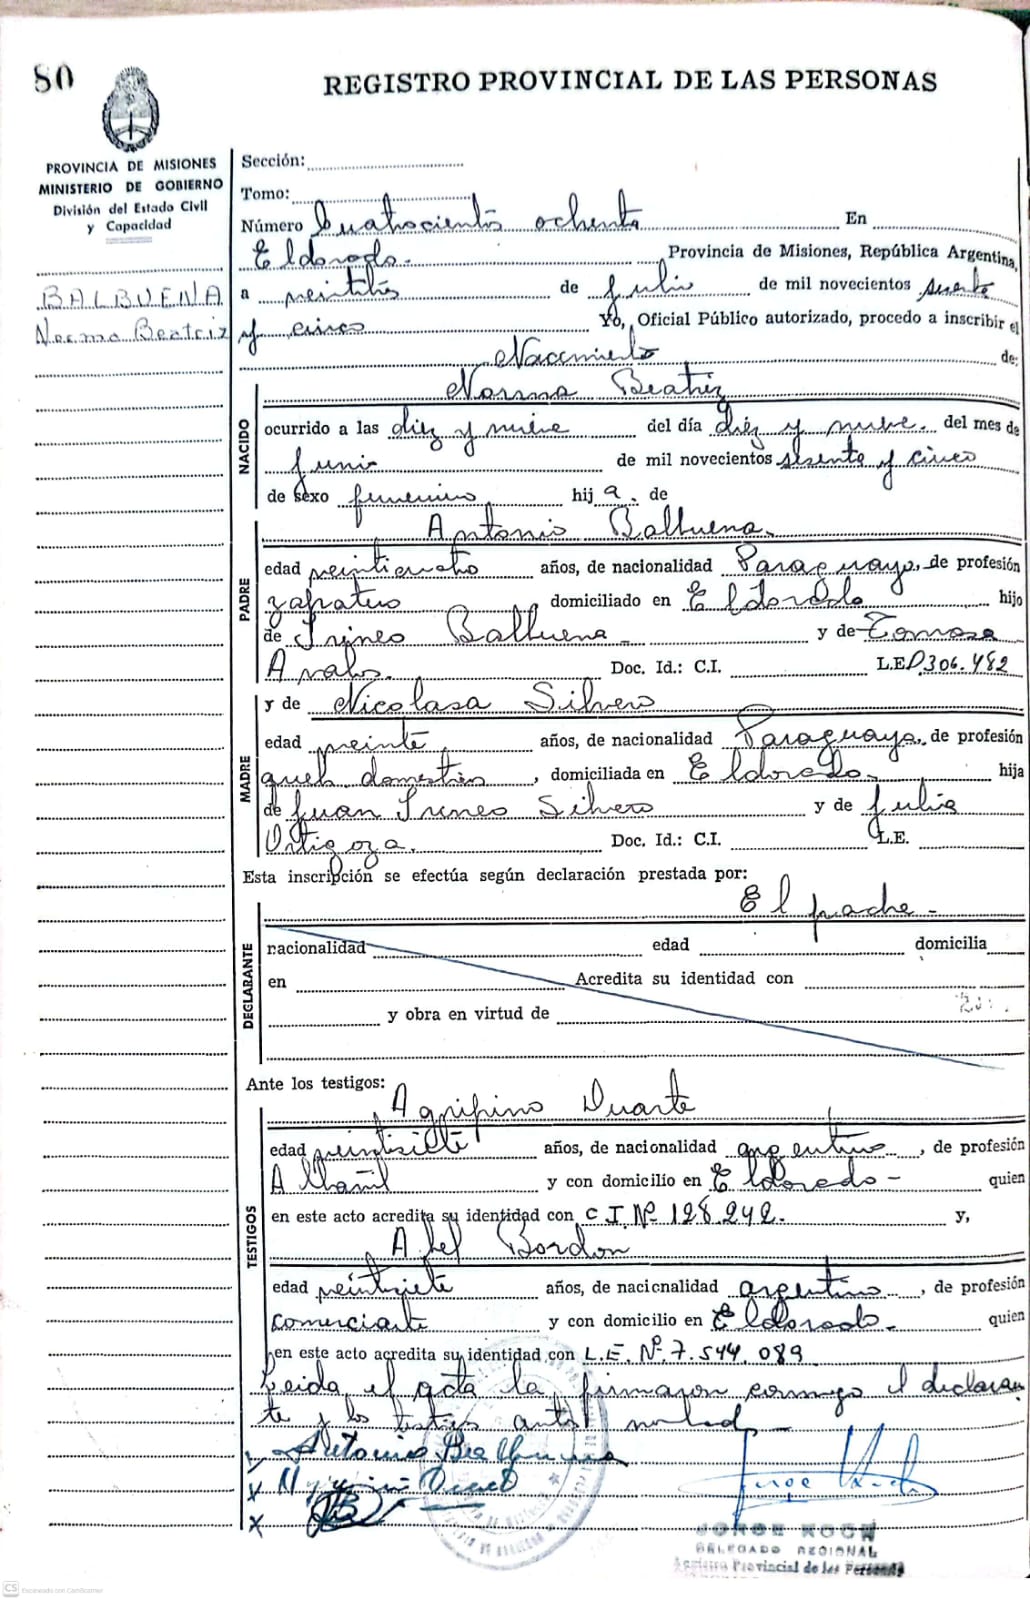 80
REGISTRO PROVINCIAL DE LAS PERSONAS
PROVINCIA DE MISIONES
MINISTERIO DE GOBIERNO
División del Estado Civil
y Capacidad
BALBUENA
Norma Beatriz
Sección:
Tomo:
Número Cuatrocientos ochenta En
Eldorado. Provincia de Misiones, República Argentina,
a veintitrés de Julio de mil novecientos sesenta
y cinco Yo, Oficial Público autorizado, procedo a inscribir el
Nacimiento de:
Norma Beatriz
NACIDO
ocurrido a las diez y nueve del día diez y nueve. del mes de
junio de mil novecientos sesenta y cinco
de sexo femenino hij a. de
Antonio Balbuena.
PADRE
edad veinticuatro años, de nacionalidad Paraguayo, de profesión
zapatero domiciliado en Eldorado hijo
de Irineo Balbuena y de Tomasa
Avalos. Doc. Id.: C.I. L.E. 306.482
y de Nicolasa Silvero
MADRE
edad veinte años, de nacionalidad Paraguaya, de profesión
queh domésticos, domiciliada en Eldorado. hija
de Juan Irineo Silvero y de Julia
Ortigoza. Doc. Id.: C.I. L.E.
Esta inscripción se efectúa según declaración prestada por:
El padre -
DECLARANTE
nacionalidad edad domicilia
en Acredita su identidad con
y obra en virtud de
Ante los testigos:
Agripino Duarte
TESTIGOS
edad veintisiete años, de nacionalidad argentino, de profesión
Albañil y con domicilio en Eldorado - quien
en este acto acredita su identidad con C.I. Nº 128.242. y,
Abel Bordon
edad veintisiete años, de nacionalidad argentino, de profesión
comerciante y con domicilio en Eldorado. quien
en este acto acredita su identidad con L.E. Nº 7.544.089
Leida el acta la firmaron conmigo el declaran
te y los testigos antes
Antonio Balbuena
x
x
Jorge Koch
JORGE KOCH
DELEGADO REGIONAL
Registro Provincial de las Personas
CS Escaneado con CamScanner